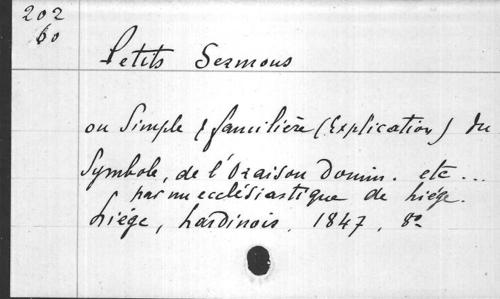 202
60
Petits Sermons
ou Simple & familière (Explication) du
Symbole, de l'Oraison Domin. etc ...
par un ecclésiastique de Liége.
Liége, Lardinois, 1847, 8o